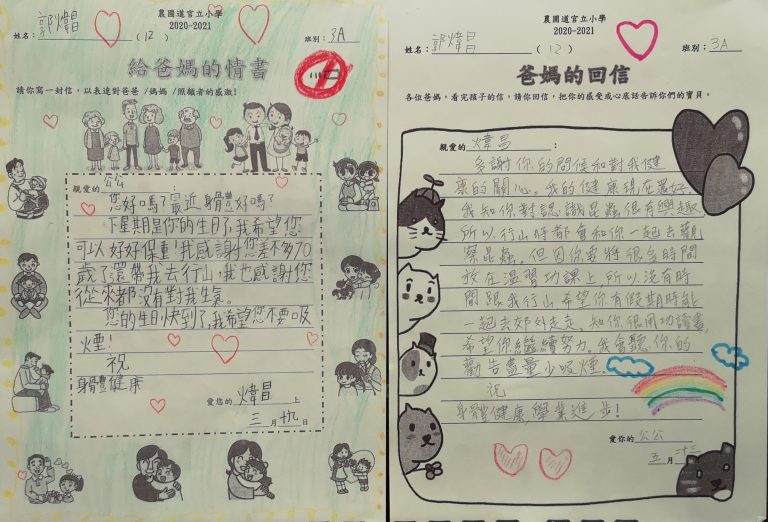 農圃道官立小學
2020-2021
姓名：郭煒昌 (12) 班別：3A
給爸媽的情書
請你寫一封信，以表達對爸爸/媽媽/照顧者的感激!
親愛的公公：
您好嗎?最近身體好嗎?
下星期是你的生日了,我希望您
可以好好保重!我感謝您差不多70
歲了還帶我去行山,我也感謝您
從來都沒有對我生氣。
您的生日快到了,我希望您不要吸
煙!
祝
身體健康
愛您的 煒昌 上
三月十九日
農圃道官立小學
2020-2021
姓名：郭煒昌 (12) 班別：3A
爸媽的回信
各位爸媽，看完孩子的信，請你回信，把你的感受或心底話告訴你們的寶貝。
親愛的 煒昌：
多謝你的問候和對我健
康的關心。我的健康現在還好。
我知你對認識昆蟲很有興趣,
所以行山時都會和你一起去觀
察昆蟲。但因你要將很多時間
放在溫習功課上,所以沒有時
間跟我行山,希望你有假期時能
一起去郊外走走。知你很用功讀書,
希望你繼續努力。我會聽你的
勸告盡量少吸煙.
祝
身體健康,學業進步!
愛你的 公公
五月二十三